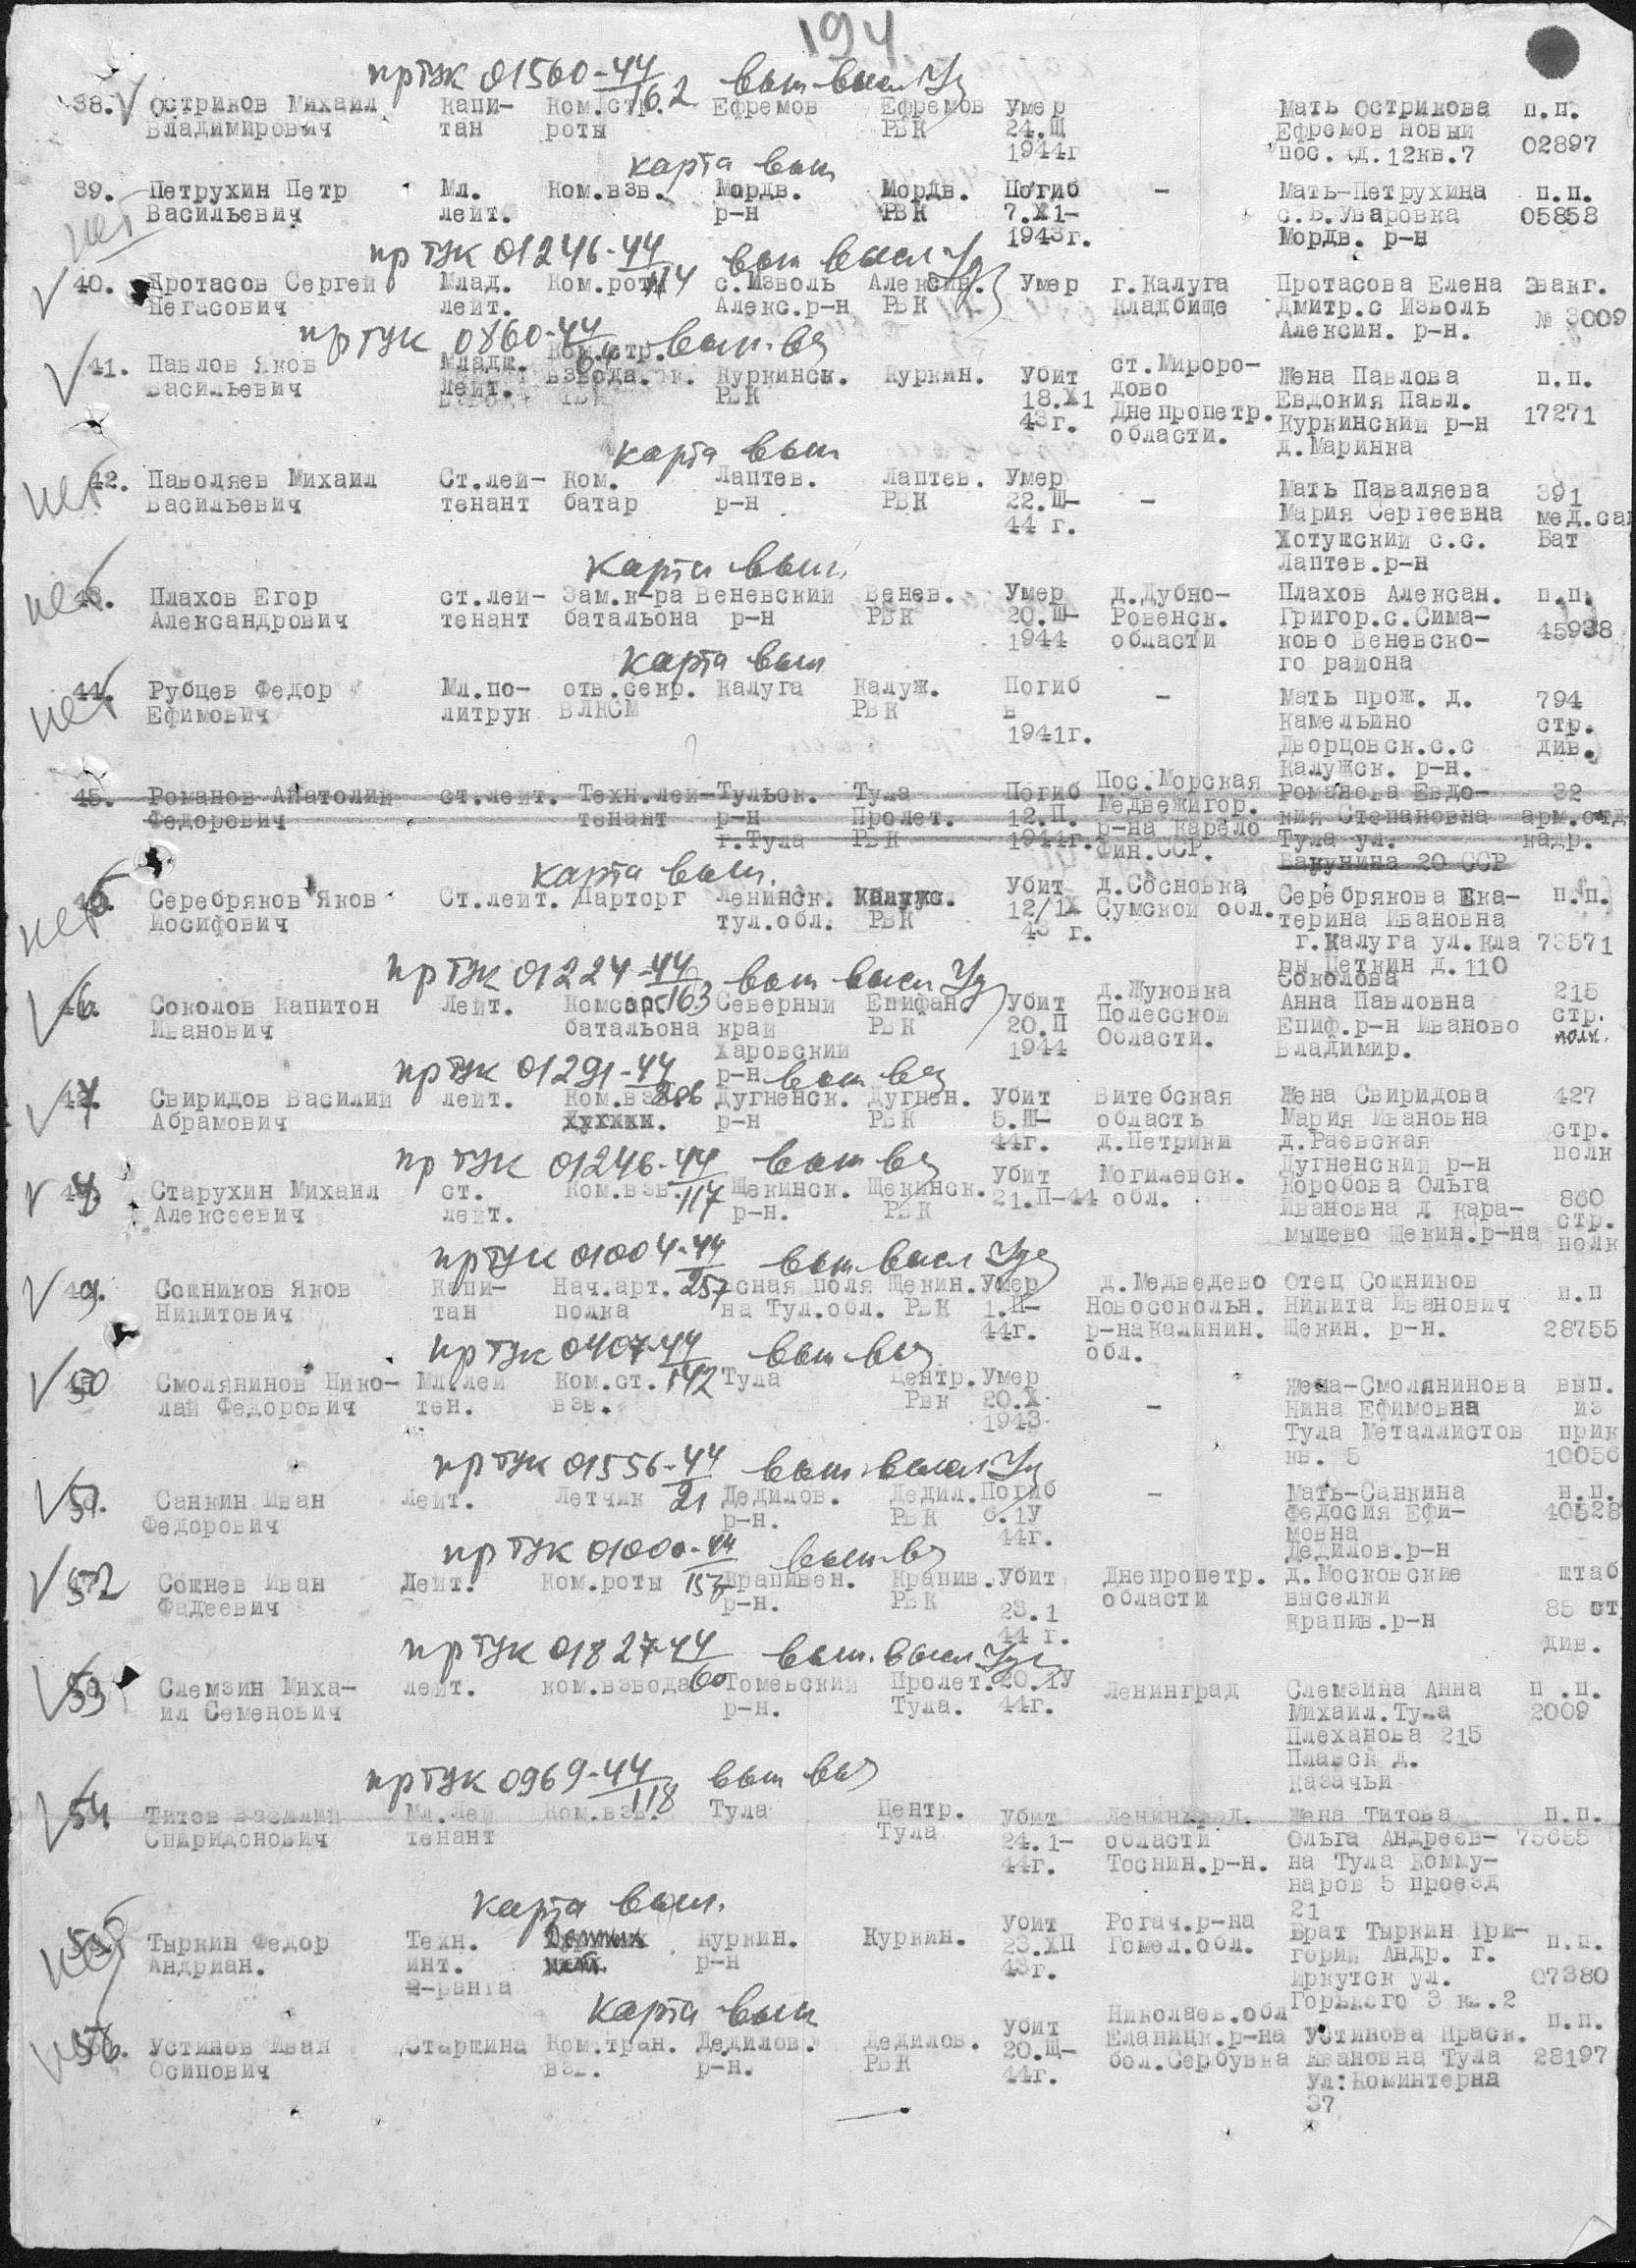 194
пр ГУК 01560-44/162 вып
38. Остриков Михаил Капи- Ком.стр. Ефремов Ефремов Умер Мать Острикова п.п.
Владимирович тан роты РВК 24.Ш Ефремов новый 02897
1944г пос. д.12кв.7
карта вып
39. Петрухин Петр Мл. Ком.взв. Мордв. Мордв. Погиб - Мать-Петрухина п.п.
нет Васильевич лейт. р-н РВК 7.Х1- с.Б.Уваровка 05858
1943г. Мордв. р-н
пр ГУК 01246-44/114 вып
40. Протасов Сергей Млад. Ком.роты с.Изволь Алексин. Умер г.Калуга Протасова Елена Эвакг.
Пегасович лейт. Алекс.р-н РВК кладбище Дмитр.с Изволь № 3009
Алексин. р-н.
пр ГУК 0860-44
41. Павлов Яков Младш. Ком.стр. Куркинск. Куркин. Убит ст.Мироро- Жена Павлова п.п.
Васильевич лейт. взвода. РВК 18.Х1 дово Евдокия Павл. 17271
43г. Днепропетр. Куркинский р-н
области. д.Маринка
карта вып
нет 42. Паволяев Михаил Ст.лей- Ком. Лаптев. Лаптев. Умер Мать Паваляева 391
Васильевич тенант батар р-н РВК 22.Ш- - Мария Сергеевна мед.сан
44 г. Хотушский с.с. Бат
Лаптев.р-н
карта вып.
нет 43. Плахов Егор ст.лей- Зам.к-ра Веневский Венев. Умер д.Дубно- Плахов Алексан. п.п.
Александрович тенант батальона р-н РВК 20.Ш- Ровенск. Григор.с.Сима- 45938
1944 области ково Веневско-
го района
карта вып
нет 44. Рубцев Федор Мл.по- отв.секр. Калуга Калуж. Погиб - Мать прож. д. 794
Ефимович литрук ВЛКСМ РВК в Камельино стр.
1941г. Дворцовск.с.с див.
Калужск. р-н.
45. Романов Анатолий ст.лейт. Техн.лей- Тульск. Тула Погиб Пос.Морская Романова Евдо- 32
Федорович тенант р-н Пролет. 12.П. Медвежигор. кия Степановна арм.отд
г.Тула РВК 1944г. р-на Карело Тула ул. кадр.
Фин.ССР. Бакунина 20 ССР
карта вып.
нет Серебряков Яков Ст.лейт. Парторг Ленинск. Калужс. Убит д.Сосновка Серебрякова Ека- п.п.
Иосифович тул.обл. РВК 12/1Х Сумской обл. терина Ивановна
43 г. г.Калуга ул.Кла 73571
ры Цеткин д.110
пр ГУК 01224-44/163 вып
46. Соколов Капитон Лейт. Комсорг Северный Епифан Убит д.Жуковка Соколова 215
Иванович батальона край РВК 20.П Полесской Анна Павловна стр.
Харовский 1944 Области. Епиф.р-н Иваново полк.
р-н Владимир.
пр ГУК 01291-44 вып
47. Свиридов Василий лейт. Ком.взв. Дугненск. Дугнен. убит Витебская Жена Свиридова 427
Абрамович р-н 5.Ш- область Мария Ивановна стр.
44г. д.Петрики д.Раевская полк
Дугненский р-н
пр ГУК 01246-44/117 вып
48. Старухин Михаил ст. Ком.взв. Щекинск. Щекинск. убит Могилевск. Коробова Ольга 860
Алексеевич лейт. р-н. РВК 21.П-44 обл. Ивановна д Кара- стр.
мышево Щекин.р-на полк
пр ГУК 01004-44/257 вып
49. Сошников Яков Капи- Нач.арт. сная поля Щекин. Умер д.Медведево Отец Сошников п.п
Никитович тан полка на Тул.обл. РВК 1.П- Новосокольн. Никита Иванович 28755
44г. р-на Калинин. Щекин. р-н.
обл.
пр ГУК 0407-44/142 вып
50 Смолянинов Нико- Мл.лей Ком.ст. Тула Центр. Умер Жена-Смолянинова вып.
лай Федорович тен. взв. РВК 20.Х - Нина Ефимовна из
1943 Тула Металлистов прик
кв. 5 10056
пр ГУК 01556-44/21 вып
51. Санкин Иван Лейт. Летчик Дедилов. Дедил. Погиб - Мать-Санкина п.п.
Федорович р-н. РВК 6.1У Федосия Ефи- 40528
44г. мовна
Дедилов.р-н
пр ГУК 01000-44 вып
52 Сошнев Иван Лейт. Ком.роты Крапивен. Крапив. Убит Днепропетр. д.Московские штаб
Фадеевич р-н. РВК 23.1 области выселки 85 ст
44 г. Крапив.р-н див.
пр ГУК 01827-44/60 вып.
53 Слемзин Миха- лейт. ком.взвода Томевский Пролет. 20.1У Ленинград Слемзина Анна п.п.
ил Семенович р-н. Тула. 44г. Михаил.Тула 2009
Плеханова 215
Плавск д.
Казачьи
пр ГУК 0969-44/118 вып
54 Титов Василий Мл.Лей Ком.взв. Тула Центр. Убит Ленинград. Жена Титова п.п.
Спиридонович тенант Тула 24.1- области Ольга Андреев- 75655
44г. Тоснин.р-н. на Тула Комму-
наров 5 проезд
21
карта вып.
нет 55 Тыркин Федор Техн. Куркин. Куркин. Убит Рогач.р-на Брат Тыркин Гри- п.п.
Андриан. инт. р-н 23.ХП Гомел.обл. горий Андр. г. 07380
2-ранга 43г. Иркутск ул.
Горького 3 кв.2
карта вып
нет 56. Устинов Иван Старшина Ком.тран. Дедилов. Дедилов. Убит Николаев.обл Устинова Праск. п.п.
Осипович взв. р-н. РВК 20.Ш- Еланицк.р-на Ивановна Тула 28197
44г. бол.Сербувка ул:Коминтерна
37